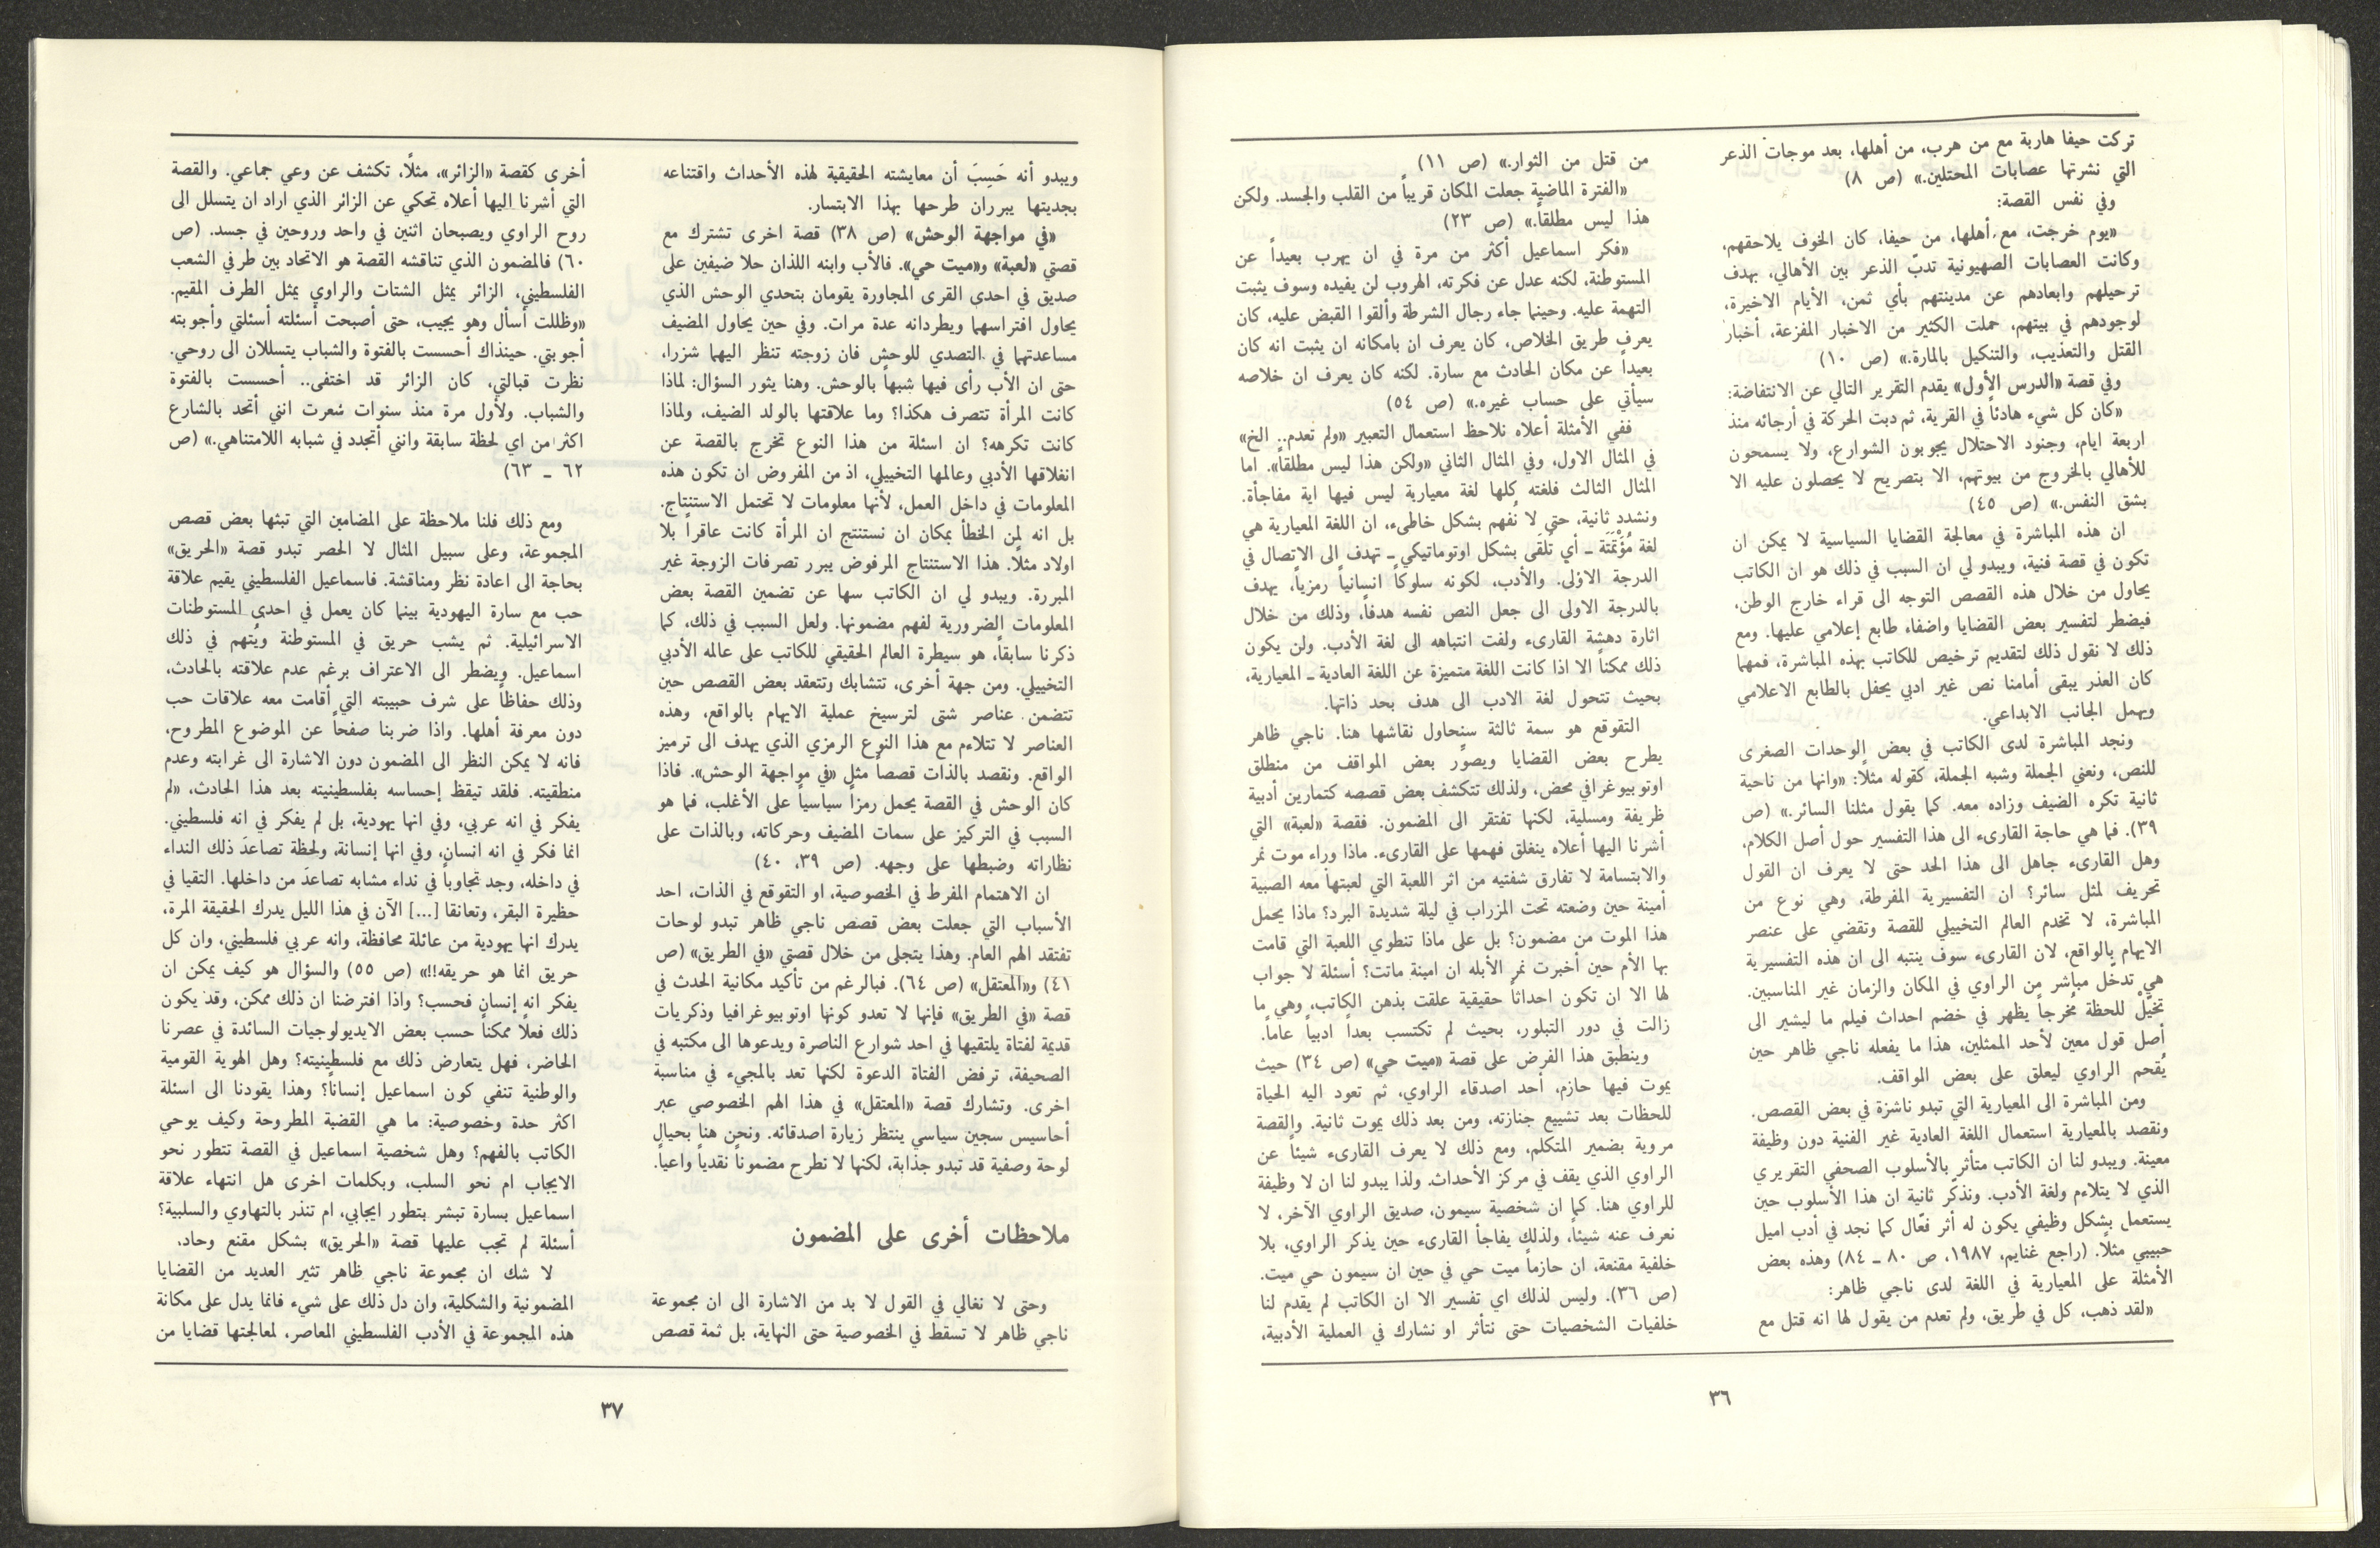 تركت حيفا هاربة مع من هرب، من أهلها، بعد موجات الذعر
التي نشرتها عصابات المحتلين.» (ص ٨)
وفي نفس القصة:
«يوم خرجت، مع أهلها، من حيفا، كان الخوف يلاحقهم،
وكانت العصابات الصهيونية تدبّ الذعر بين الأهالي، بهدف
ترحيلهم وابعادهم عن مدينتهم بأي ثمن، الأيام الاخيرة،
لوجودهم في بيتهم، حملت الكثير من الاخبار المفزعة، أخبار
القتل والتعذيب، والتنكيل بالمارة.» (ص ١٠)
وفي قصة «الدرس الأول» يقدم التقرير التالي عن الانتفاضة:
«كان كل شيء هادئاً في القرية، ثم دبت الحركة في أرجائه منذ
اربعة ايام، وجنود الاحتلال يجوبون الشوارع، ولا يسمحون
للأهالي بالخروج من بيوتهم، الا بتصريح لا يحصلون عليه الا
بشق النفس.» (ص ٤٥)
ان هذه المباشرة في معالجة القضايا السياسية لا يمكن ان
تكون في قصة فنية، ويبدو لي ان السبب في ذلك هو ان الكاتب
يحاول من خلال هذه القصص التوجه الى قراء خارج الوطن،
فيضطر لتفسير بعض القضايا واضفاء طابع إعلامي عليها. ومع
ذلك لا نقول ذلك لتقديم ترخيص للكاتب بهذه المباشرة، فمهما
كان العذر يبقى أمامنا نص غير ادبي يحفل بالطابع الاعلامي
ويهمل الجانب الابداعي.
ونجد المباشرة لدى الكاتب في بعض الوحدات الصغرى
للنص، ونعني الجملة وشبه الجملة، كقوله مثلًا: «وانها من ناحية
ثانية تكره الضيف وزاده معه. كما يقول مثلنا السائر.» (ص
٣٩). فما هي حاجة القارىء الى هذا التفسير حول أصل الكلام،
وهل القارىء جاهل الى هذا الحد حتى لا يعرف ان القول
تحريف لمثل سائر؟ ان التفسيرية المفرطة، وهي نوع من
المباشرة، لا تخدم العالم التخييلي للقصة وتقضي على عنصر
الايهام بالواقع، لان القارىء سوف ينتبه الى ان هذه التفسيرية
هي تدخل مباشر من الراوي في المكان والزمان غير المناسبين.
تخيّلْ للحظة مُخرجاً يظهر في خضم احداث فيلم ما ليشير الى
أصل قول معين لأحد الممثلين، هذا ما يفعله ناجي ظاهر حين
يُقحم الراوي ليعلق على بعض المواقف.
ومن المباشرة الى المعيارية التي تبدو ناشزة في بعض القصص.
ونقصد بالمعيارية استعمال اللغة العادية غير الفنية دون وظيفة
معينة. ويبدو لنا ان الكاتب متأثر بالأسلوب الصحفي التقريري
الذي لا يتلاءم ولغة الأدب. ونذكّر ثانية ان هذا الأسلوب حين
يستعمل بشكل وظيفي يكون له أثر فعّال كما نجد في أدب اميل
حبيبي مثلًا. (راجع غنايم، ١٩٨٧، ص ٨٠ ــ ٨٤) وهذه بعض
الأمثلة على المعيارية في اللغة لدى ناجي ظاهر:
«لقد ذهب، كل في طريق، ولم تعدم من يقول لها انه قتل مع
من قتل من الثوار.» (ص ١١)
«الفترة الماضية جعلت المكان قريباً من القلب والجسد. ولكن
هذا ليس مطلقاً.» (ص ٢٣)
«فكر اسماعيل أكثر من مرة في ان يهرب بعيداً عن
المستوطنة، لكنه عدل عن فكرته، الهروب لن يفيده وسوف يثبت
التهمة عليه. وحينما جاء رجال الشرطة وألقوا القبض عليه، كان
يعرف طريق الخلاص، كان يعرف ان بامكانه ان يثبت انه كان
بعيداً عن مكان الحادث مع سارة. لكنه كان يعرف ان خلاصه
سيأتي على حساب غيره.» (ص ٥٤)
ففي الأمثلة أعلاه نلاحظ استعمال التعبير «ولم تعدم.. الخ»
في المثال الاول، وفي المثال الثاني «ولكن هذا ليس مطلقاً». اما
المثال الثالث فلغته كلها لغة معيارية ليس فيها اية مفاجأة.
ونشدد ثانية، حتى لا نُفهم بشكل خاطىء، ان اللغة المعيارية هي
لغة مُؤَتْمَتَة ــ أي تُلقى بشكل اوتوماتيكي ــ تهدف الى الاتصال في
الدرجة الاولى. والأدب، لكونه سلوكاً انسانياً رمزياً، يهدف
بالدرجة الاولى الى جعل النص نفسه هدفاً، وذلك من خلال
اثارة دهشة القارىء ولفت انتباهه الى لغة الأدب. ولن يكون
ذلك ممكناً الا اذا كانت اللغة متميزة عن اللغة العادية ــ المعيارية،
بحيث تتحول لغة الادب الى هدف بحد ذاتها.
التقوقع هو سمة ثالثة سنحاول نقاشها هنا. ناجي ظاهر
يطرح بعض القضايا ويصوّر بعض المواقف من منطلق
اوتوبيوغرافي محض، ولذلك تتكشف بعض قصصه كتمارين أدبية
ظريفة ومسلية، لكنها تفتقر الى المضمون. فقصة «لعبة» التي
أشرنا اليها أعلاه ينغلق فهمها على القارىء. ماذا وراء موت نمر
والابتسامة لا تفارق شفتيه من اثر اللعبة التي لعبتها معه الصبية
أمينة حين وضعته تحت المزراب في ليلة شديدة البرد؟ ماذا يحمل
هذا الموت من مضمون؟ بل على ماذا تنطوي اللعبة التي قامت
بها الأم حين أخبرت نمر الأبله ان امينة ماتت؟ أسئلة لا جواب
لها الا ان تكون احداثاً حقيقية علقت بذهن الكاتب، وهي ما
زالت في دور التبلور، بحيث لم تكتسب بعداً ادبياً عاماً.
وينطبق هذا الفرض على قصة «ميت حي» (ص ٣٤) حيث
يموت فيها حازم، أحد اصدقاء الراوي، ثم تعود اليه الحياة
للحظات بعد تشييع جنازته، ومن بعد ذلك يموت ثانية. والقصة
مروية بضمير المتكلم، ومع ذلك لا يعرف القارىء شيئاً عن
الراوي الذي يقف في مركز الأحداث. ولذا يبدو لنا ان لا وظيفة
للراوي هنا. كما ان شخصية سيمون، صديق الراوي الآخر، لا
نعرف عنه شيئاً، ولذلك يفاجأ القارىء حين يذكر الراوي، بلا
خلفية مقنعة، ان حازماً ميت حي في حين ان سيمون حي ميت.
(ص ٣٦). وليس لذلك اي تفسير الا ان الكاتب لم يقدم لنا
خلفيات الشخصيات حتى نتأثر او نشارك في العملية الأدبية،
٣٦
ويبدو أنه حَسِبَ أن معايشته الحقيقية لهذه الأحداث واقتناعه
بجديتها يبرران طرحها بهذا الابتسار.
«في مواجهة الوحش» (ص ٣٨) قصة اخرى تشترك مع
قصتي «لعبة» و«ميت حي». فالأب وابنه اللذان حلا ضيفين على
صديق في احدى القرى المجاورة يقومان بتحدي الوحش الذي
يحاول افتراسهما ويطردانه عدة مرات. وفي حين يحاول المضيف
مساعدتهما في التصدي للوحش فان زوجته تنظر اليهما شزرا،
حتى ان الأب رأى فيها شبهاً بالوحش. وهنا يثور السؤال: لماذا
كانت المرأة تتصرف هكذا؟ وما علاقتها بالولد الضيف، ولماذا
كانت تكرهه؟ ان اسئلة من هذا النوع تخرج بالقصة عن
انغلاقها الأدبي وعالمها التخييلي، اذ من المفروض ان تكون هذه
المعلومات في داخل العمل، لأنها معلومات لا تحتمل الاستنتاج.
بل انه لمن الخطأ بمكان ان نستنتج ان المرأة كانت عاقراً بلا
اولاد مثلًا. هذا الاستنتاج المرفوض يبرر تصرفات الزوجة غير
المبررة. ويبدو لي ان الكاتب سها عن تضمين القصة بعض
المعلومات الضرورية لفهم مضمونها. ولعل السبب في ذلك، كما
ذكرنا سابقاً، هو سيطرة العالم الحقيقي للكاتب على عالمه الأدبي
التخييلي. ومن جهة أخرى، تتشابك وتتعقد بعض القصص حين
تتضمن عناصر شتى لترسيخ عملية الايهام بالواقع، وهذه
العناصر لا تتلاءم مع هذا النوع الرمزي الذي يهدف الى ترميز
الواقع. ونقصد بالذات قصصاً مثل «في مواجهة الوحش». فاذا
كان الوحش في القصة يحمل رمزاً سياسياً على الأغلب، فما هو
السبب في التركيز على سمات المضيف وحركاته، وبالذات على
نظاراته وضبطها على وجهه. (ص ٣٩، ٤٠)
ان الاهتمام المفرط في الخصوصية، او التقوقع في الذات، احد
الأسباب التي جعلت بعض قصص ناجي ظاهر تبدو لوحات
تفتقد الهم العام. وهذا يتجلى من خلال قصتي «في الطريق» (ص
٤١) و«المعتقل» (ص ٦٤). فبالرغم من تأكيد مكانية الحدث في
قصة «في الطريق» فإنها لا تعدو كونها اوتوبيوغرافيا وذكريات
قديمة لفتاة يلتقيها في احد شوارع الناصرة ويدعوها الى مكتبه في
الصحيفة، ترفض الفتاة الدعوة لكنها تعد بالمجيء في مناسبة
اخرى. وتشارك قصة «المعتقل» في هذا الهم الخصوصي عبر
أحاسيس سجين سياسي ينتظر زيارة اصدقائه. ونحن هنا بحيال
لوحة وصفية قد تبدو جذابة، لكنها لا تطرح مضموناً نقدياً واعياً.
ملاحظات أخرى على المضمون
وحتى لا نغالي في القول لا بد من الاشارة الى ان مجموعة
ناجي ظاهر لا تسقط في الخصوصية حتى النهاية، بل ثمة قصص
أخرى كقصة «الزائر»، مثلًا، تكشف عن وعي جماعي. والقصة
التي أشرنا اليها أعلاه تحكي عن الزائر الذي اراد ان يتسلل الى
روح الراوي ويصبحان اثنين في واحد وروحين في جسد. (ص
٦٠) فالمضمون الذي تناقشه القصة هو الاتحاد بين طرفي الشعب
الفلسطيني، الزائر يمثل الشتات والراوي يمثل الطرف المقيم.
«وظللت أسأل وهو يجيب، حتى أصبحت أسئلته أسئلتي وأجوبته
أجوبتي. حينذاك أحسست بالفتوة والشباب يتسللان الى روحي.
نظرت قبالتي، كان الزائر قد اختفى.. أحسست بالفتوة
والشباب. ولأول مرة منذ سنوات شعرت انني أتحد بالشارع
اكثر من اي لحظة سابقة وانني أتجدد في شبابه اللامتناهي.» (ص
٦٢ ــ ٦٣)
ومع ذلك فلنا ملاحظة على المضامين التي تبثها بعض قصص
المجموعة، وعلى سبيل المثال لا الحصر تبدو قصة «الحريق»
بحاجة الى اعادة نظر ومناقشة. فاسماعيل الفلسطيني يقيم علاقة
حب مع سارة اليهودية بينما كان يعمل في احدى المستوطنات
الاسرائيلية. ثم يشب حريق في المستوطنة ويُتهم في ذلك
اسماعيل. ويضطر الى الاعتراف برغم عدم علاقته بالحادث،
وذلك حفاظاً على شرف حبيبته التي أقامت معه علاقات حب
دون معرفة أهلها. واذا ضربنا صفحاً عن الموضوع المطروح،
فانه لا يمكن النظر الى المضمون دون الاشارة الى غرابته وعدم
منطقيته. فلقد تيقظ إحساسه بفلسطينيته بعد هذا الحادث، «لم
يفكر في انه عربي، وفي انها يهودية، بل لم يفكر في انه فلسطيني.
انما فكر في انه انسان، وفي انها إنسانة، ولحظة تصاعدَ ذلك النداء
في داخله، وجد تجاوباً في نداء مشابه تصاعدَ من داخلها. التقيا في
حظيرة البقر، وتعانقا [...] الآن في هذا الليل يدرك الحقيقة المرة،
يدرك انها يهودية من عائلة محافظة، وانه عربي فلسطيني، وان كل
حريق انما هو حريقه!!» (ص ٥٥) والسؤال هو كيف يمكن ان
يفكر انه إنسان فحسب؟ واذا افترضنا ان ذلك ممكن، وقد يكون
ذلك فعلًا ممكناً حسب بعض الايديولوجيات السائدة في عصرنا
الحاضر، فهل يتعارض ذلك مع فلسطينيته؟ وهل الهوية القومية
والوطنية تنفي كون اسماعيل إنساناً؟ وهذا يقودنا الى اسئلة
اكثر حدة وخصوصية: ما هي القضية المطروحة وكيف يوحي
الكاتب بالفهم؟ وهل شخصية اسماعيل في القصة تتطور نحو
الايجاب ام نحو السلب، وبكلمات اخرى هل انتهاء علاقة
اسماعيل بسارة تبشر بتطور ايجابي، ام تنذر بالتهاوي والسلبية؟
أسئلة لم تجب عليها قصة «الحريق» بشكل مقنع وحاد.
لا شك ان مجموعة ناجي ظاهر تثير العديد من القضايا
المضمونية والشكلية، وان دل ذلك على شيء فانما يدل على مكانة
هذه المجموعة في الأدب الفلسطيني المعاصر، لمعالجتها قضايا من
٣٧